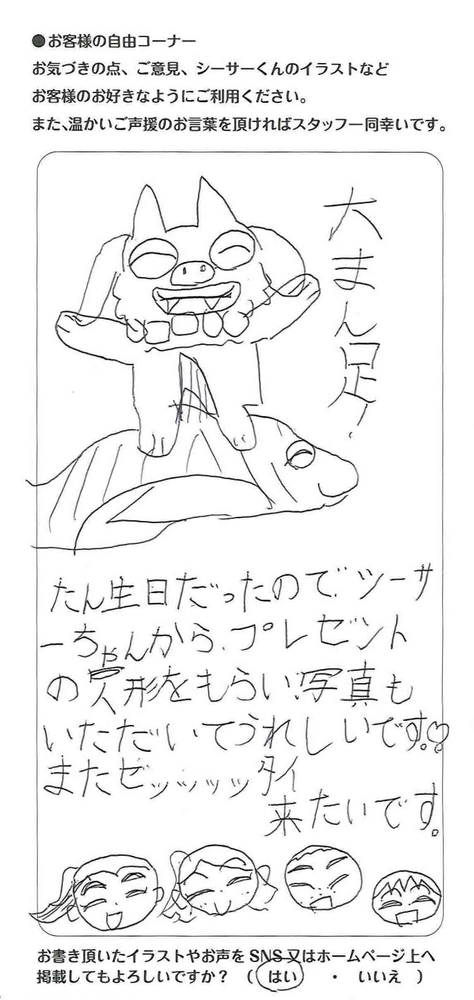 ●お客様の自由コーナー
お気づきの点、ご意見、シーサーくんのイラストなど
お客様のお好きなようにご利用ください。
また、温かいご声援のお言葉を頂ければスタッフ一同幸いです。
大まん足!
たん生日だったのでシーサ
ーちゃんから、プレゼント
の人形をもらい、写真も
いただいてうれしいです。♡
またゼッッッッタイ
来たいです。
お書き頂いたイラストやお声を SNS 又はホームページ上へ
掲載してもよろしいですか? ( はい ・ いいえ )